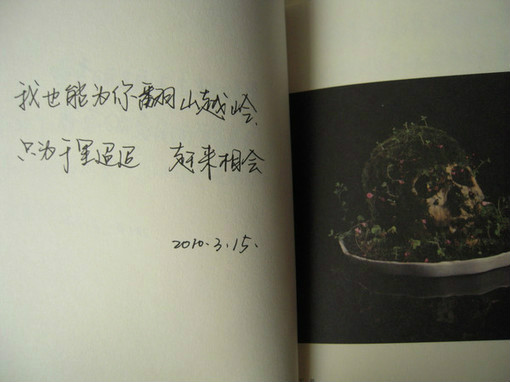 我也能为你翻山越岭、
只为千里迢迢 赶来相会
2010.3.15.